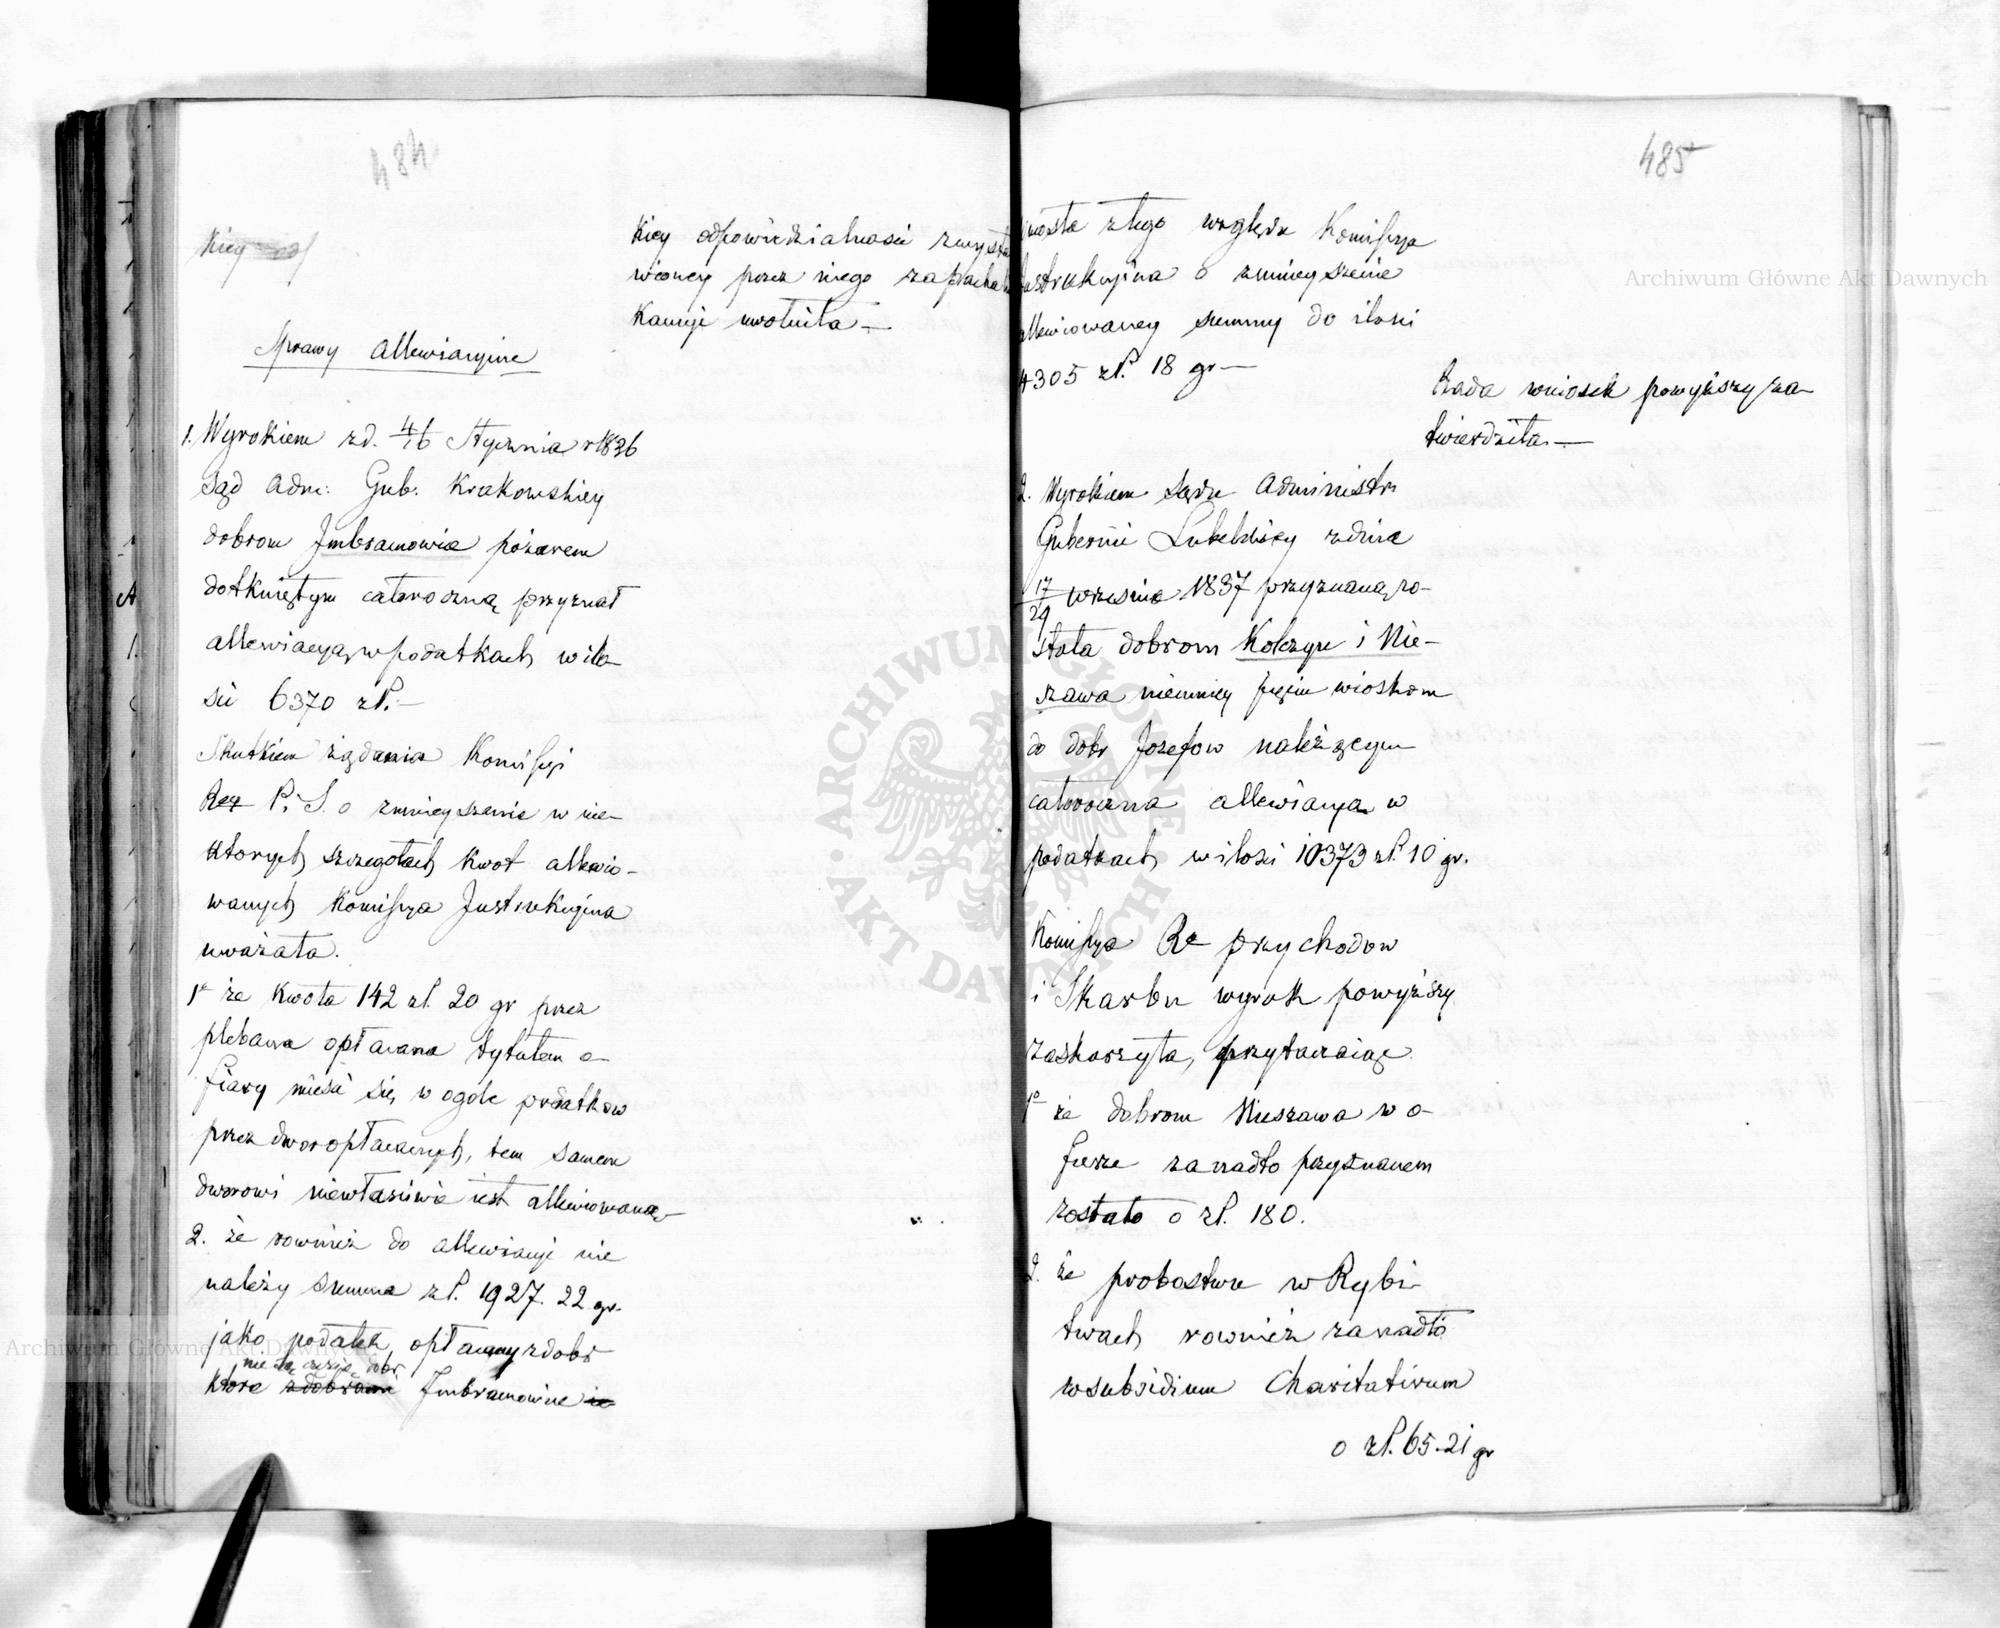 484
kiey
kiey odpowiedzialnosci z wysta
wioney przez niego zapracha
kaucji uwolniła —
Sprawy allewiacyjne
1. Wyrokiem z d. 4/16 Stycznia r 1836
Sąd Adm: Gub. Krakowskiey
dobrom Imbramowice pożarem
dotkniętym całoroczną przyznał
allewiacyą w podatkach w ilo-
sci 6370 zł. —
Skutkiem żądania Komissyi
Rząd P. i S. o zmnieyszenie w nie-
ktorych szczegołach kwot allewio-
wanych Komissya Instrukcyjna
uważała.
1° że kwota 142 zł. 20 gr przez
plebana opłacana tytułem o-
fiary mieści się w ogole podatkow
przez dwor opłacanych, tem samem
dworowi niewłaściwie iest allewiowana —
2. że rownież do allewiacyi nie
należy summa zł. 1927. 22 gr.
jako podatek opłacany z dobr
nie są częścią dobr
ktore z dobrami Imbramowice
485
miasta z tego względu Komissya
Instrukcyjna o zmnieyszenie
allewiowaney summy do ilosci
4305 zł. 18 gr —
Rada wniosek powyższy za-
twierdziła. —
2. Wyrokiem Sądu Administr
Gubernii Lubelskiey z dnia
17/29 Wrzesnia 1837 przyznaną zo-
stała dobrom Kolczyn i Nie-
szawa niemniey pięciu wioskom
do dobr Jozefow należącym
całoroczna allewiacya w
podatkach w ilosci 10373 zł. 10 gr.
Komissya Rz przychodow
i Skarbu wyrok powyższy
zaskarzyła, przytaczaiąc
1° że dobrom Nieszawa w o-
fierze zanadto przyznanem
zostało o zł. 180.
2. że probostwu w Rybi-
twach rownież zanadto
w subsidium Charitativum
o zł. 65. 21 gr
Archiwum Główne Akt Dawnych
Archiwum Główne Akt Dawnych
ARCHIWUM GŁÓWNE AKT DAWNYCH